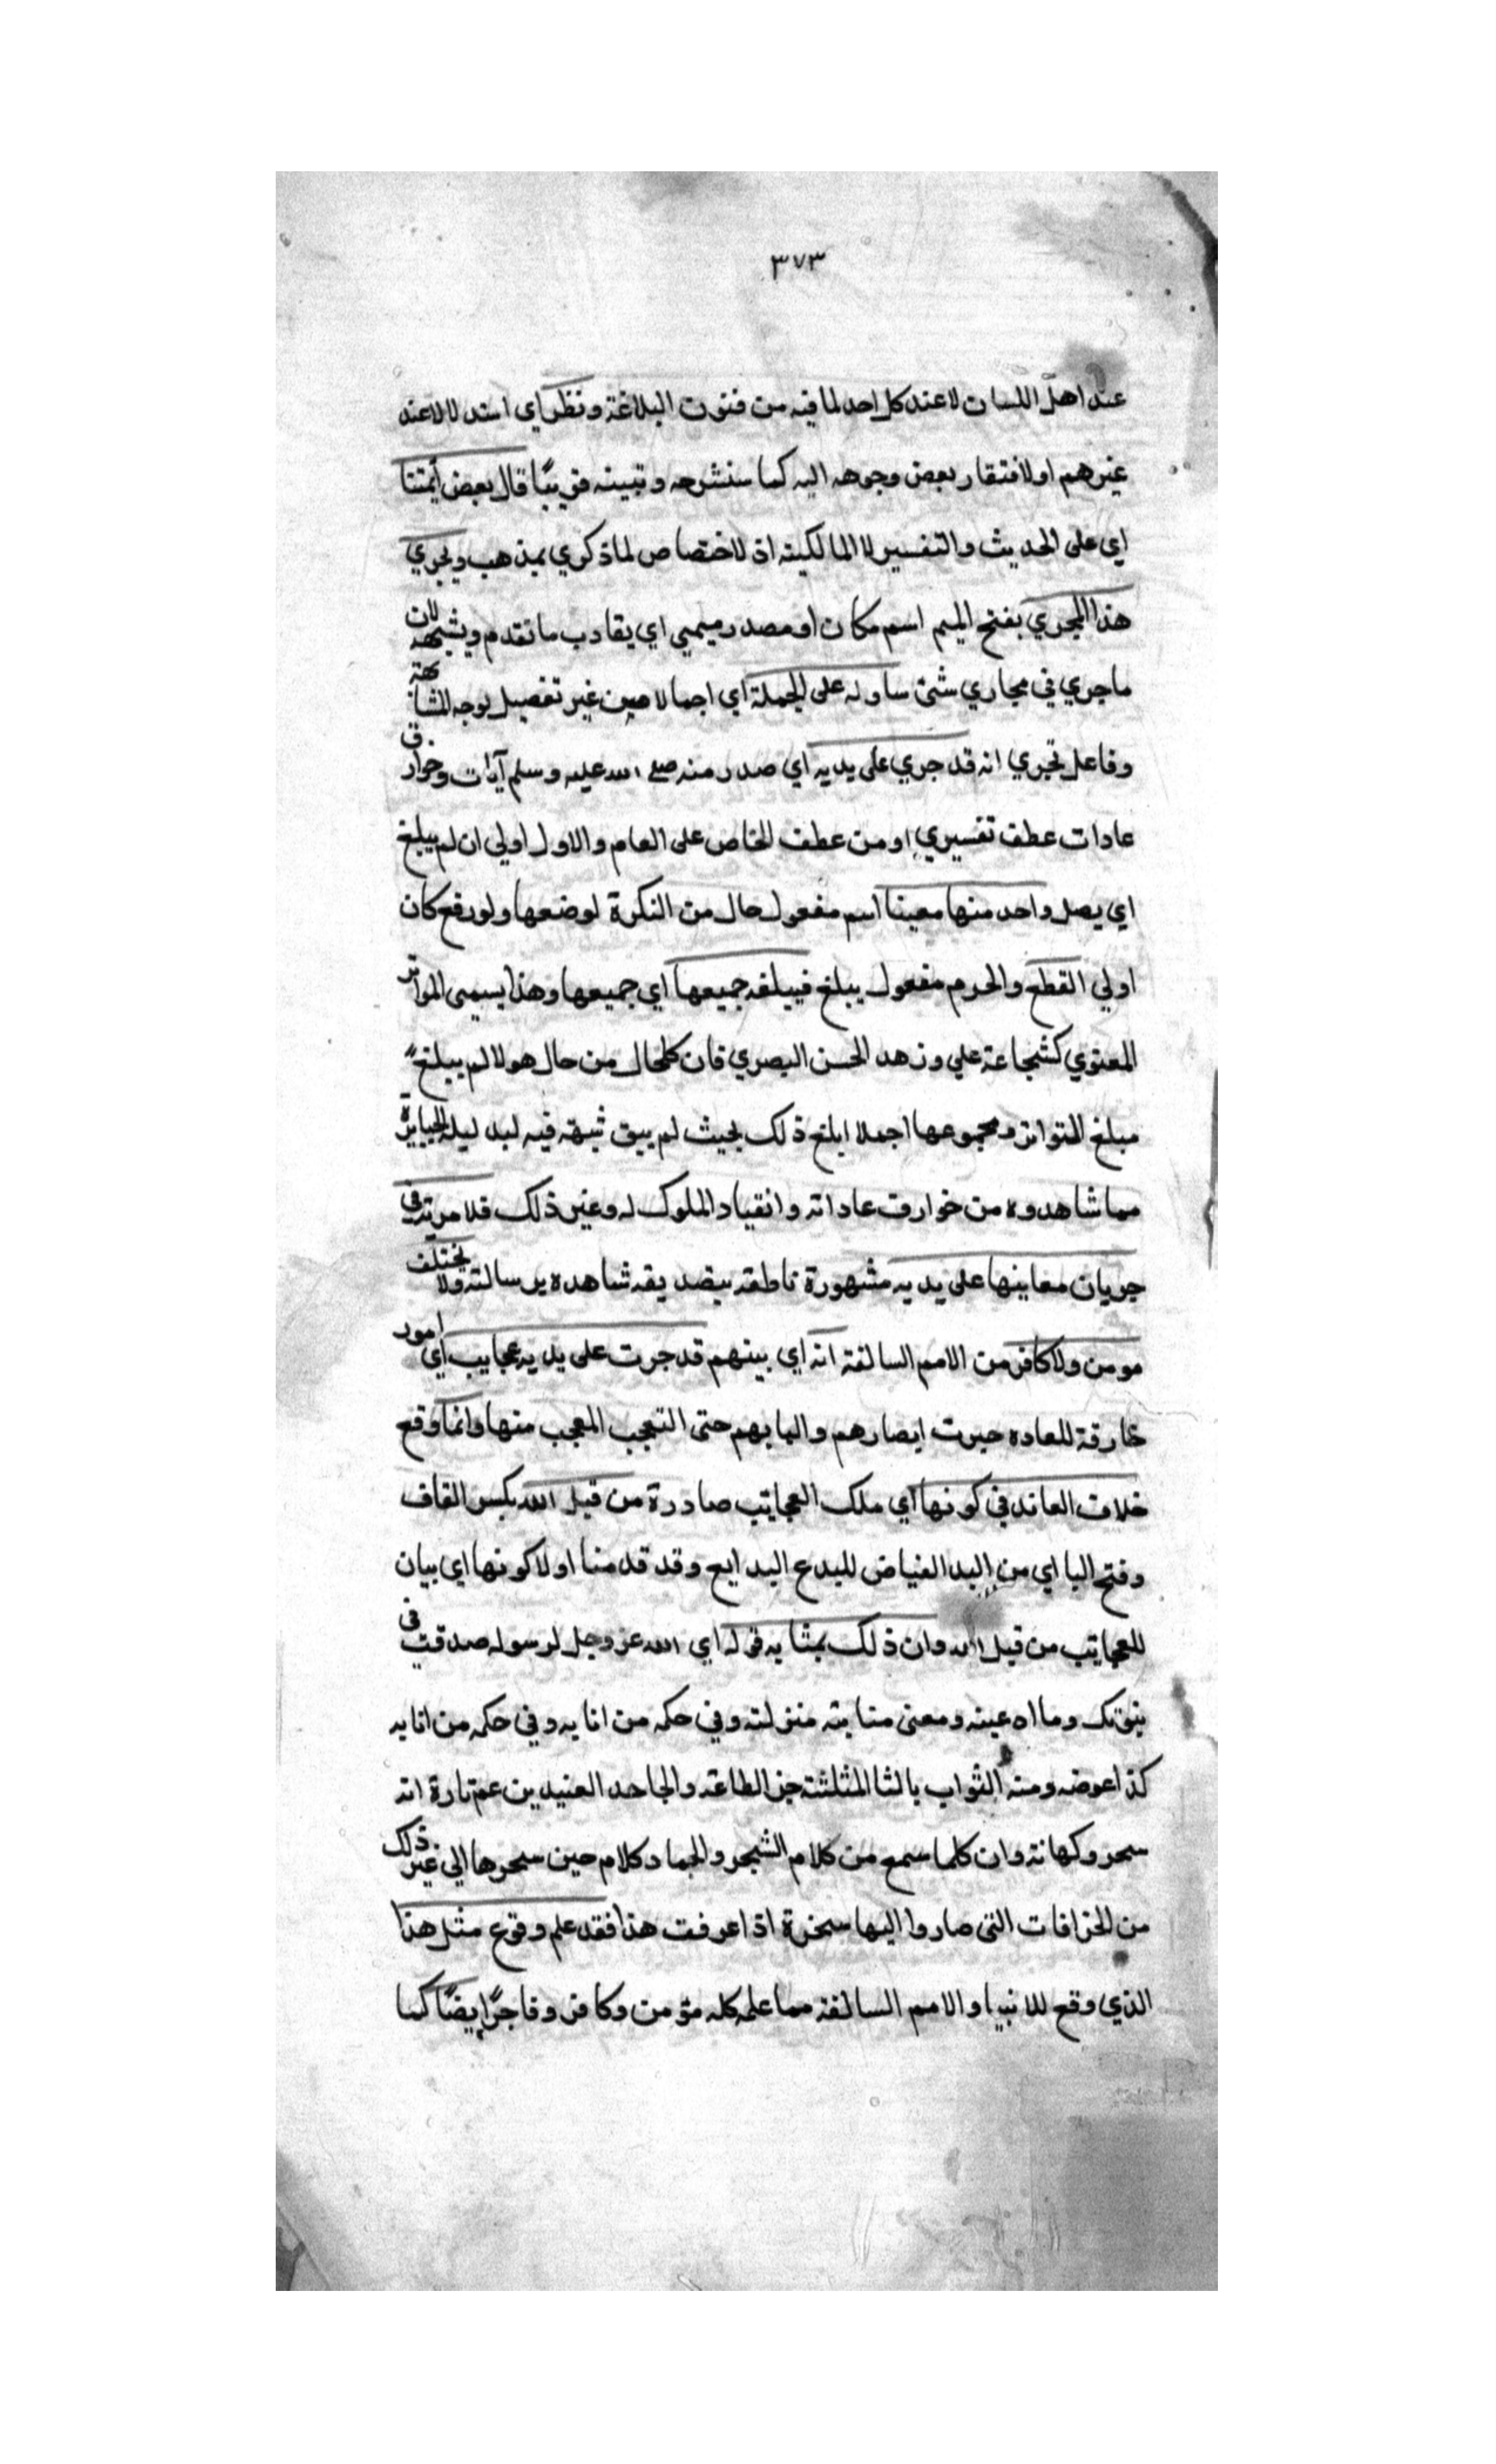 ٣٧٣
عند اهل اللسان لا عند كل احد لما فيه من فنون البلاغة ونظر اي استدلالا عند
غيرهم او لافتقار بعض وجوهه اليه كما سنشرحه ونبينه قريبًا قال بعض أيمتنا
اي على الحديث والتفسير لا المالكية اذ لا اختصاص لما ذكري بمذهب ويجري
هذا المجري بفتح الميم اسم مكان او مصدر ميمي اي يقارب ما تقدم ويشبهه لان
ما جري في مجاري شئ ساوله على الجملة اي اجمالا من غير تفصيل لوجه المشابهة
وفاعل تجري انه قد جري على يديه اي صدر منه صلى الله عليه وسلم آيات وخوارق
عادات عطف تفسيري او من عطف الخاص على العام والاول اولي ان لم يبلغ
اي يصل واحد منها معينا اسم مفعول حال من النكرة لوضعها ولو رفع كان
اولي القطع والحرم مفعول يبلغ فيبلغه جميعها اي جميعها وهذا يسمى المواتر
المعنوي كشجاعة علي وزهد الحسن البصري فان كلحال من حال هولا لم يبلغ
مبلغ المتواتر ومجموعها اجملا ابلغ ذلك بحيث لم يبق شبهة فيه
مما شاهدوه من خوارق عاداته وانقياد الملوك له وغير ذلك فلا مرية في
جريان معاينها على يديه مشهورة ناطقة بتصديقه شاهده برسالته ولا يختلف
مومن ولا كافر من الامم السالفة انه اي بينهم قد جرت على يديه عجايب اي امور
خارقة للعاده حيرت ابصارهم والبابهم حتى التعجب المعجب منها وانما وقع
خلاف العاند في كونها اي ملك العجايب صادرة من قبل الله بكسر القاف
وفتح البا اي من اليد الفياض للبدع البدايع وقد قدمنا اولا كونها اي بيان
للعجايب من قبل الله وان ذلك بمثابة قوله اي الله عز وجل لرسوله صدقت في
نبوتك وما ادعيته ومعنى مثابته منزلته وفي حكمه من اثابه وفي حكمه من اثابه
كذا عوضه ومنه الثواب بالثا المثلثة جز الطاعة والجاحد العنيد ين عم تارة انه
سحر وكهانة وان كلما سمع من كلام الشجر والجماد كلام حين سحرها الي غير ذلك
من الخرافات التى صاروا اليها سخرة اذا عرفت هذا فقد علم وقوع مثل هذا
الذي وقع للانبيا والامم السالفة مما علمه كله مؤمن وكافر وفاجرًا يضًا كما